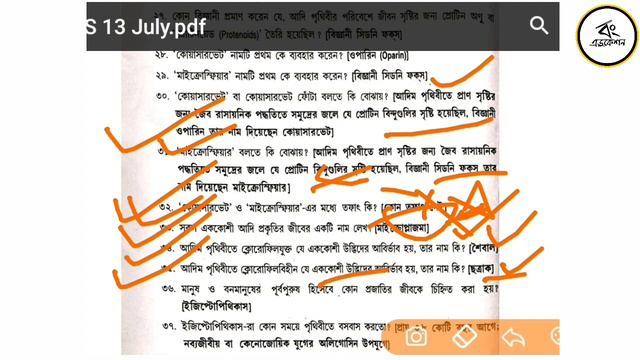 S 13 July.pdf
বং
এডুকেশন
২৭. কোন বিজ্ঞানী প্রমাণ করেন যে, আদি পৃথিবীর পরিবেশে জীবন সৃষ্টির জন্য প্রোটিন অণু বা
(Protenoids)' তৈরি হয়েছিল? [বিজ্ঞানী সিডনি ফক্স]
২৮. 'কোয়াসারভেট' নামটি প্রথম কে ব্যবহার করেন? [ওপারিন (Oparin)]
২৯. 'মাইক্রোস্ফিয়ার' নামটি প্রথম কে ব্যবহার করেন? [বিজ্ঞানী সিডনি ফক্স]
৩০. 'কোয়াসারভেট' বা কোয়াসারভেট ফোঁটা বলতে কি বোঝায়? [আদিম পৃথিবীতে প্রাণ সৃষ্টির
জন্য জৈব রাসায়নিক পদ্ধতিতে সমুদ্রের জলে যে প্রোটিন বিন্দুগুলির সৃষ্টি হয়েছিল, বিজ্ঞানী
ওপারিন তার নাম দিয়েছেন কোয়াসারভেট]
৩১. 'মাইক্রোস্ফিয়ার' বলতে কি বোঝায়? [আদিম পৃথিবীতে প্রাণ সৃষ্টির জন্য জৈব রাসায়নিক
পদ্ধতিতে সমুদ্রের জলে যে প্রোটিন বিন্দুগুলির সৃষ্টি হয়েছিল, বিজ্ঞানী সিডনি ফক্স তার
নাম দিয়েছেন মাইক্রোস্ফিয়ার]
৩২. 'কোয়াসারভেট' ও 'মাইক্রোস্ফিয়ার'-এর মধ্যে তফাৎ কি? [কোন তফাৎ
৩৩. সরল এককোশী আদি প্রকৃতির জীবের একটি নাম লেখ। [মাইকোপ্লাজমা]
৩৪. আদিম পৃথিবীতে ক্লোরোফিলযুক্ত যে এককোশী উদ্ভিদের আবির্ভাব হয়, তার নাম কি? [শৈবাল]
৩৫. আদিম পৃথিবীতে ক্লোরোফিলবিহীন যে এককোশী উদ্ভিদের আবির্ভাব হয়, তার নাম কি? [ছত্রাক]
৩৬. মানুষ ও বনমানুষের পূর্বপুরুষ হিসেবে কোন প্রজাতির জীবকে চিহ্নিত করা হয়?
[ইজিপ্টোপিথিকাস]
৩৭. ইজিপ্টোপিথিকাস-রা কোন সময়ে পৃথিবীতে বসবাস করতো? [প্রায় কোটি বছর আগে
নব্যজীবীয় বা কেনোজোয়িক যুগের অলিগোসিন উপযুগে]